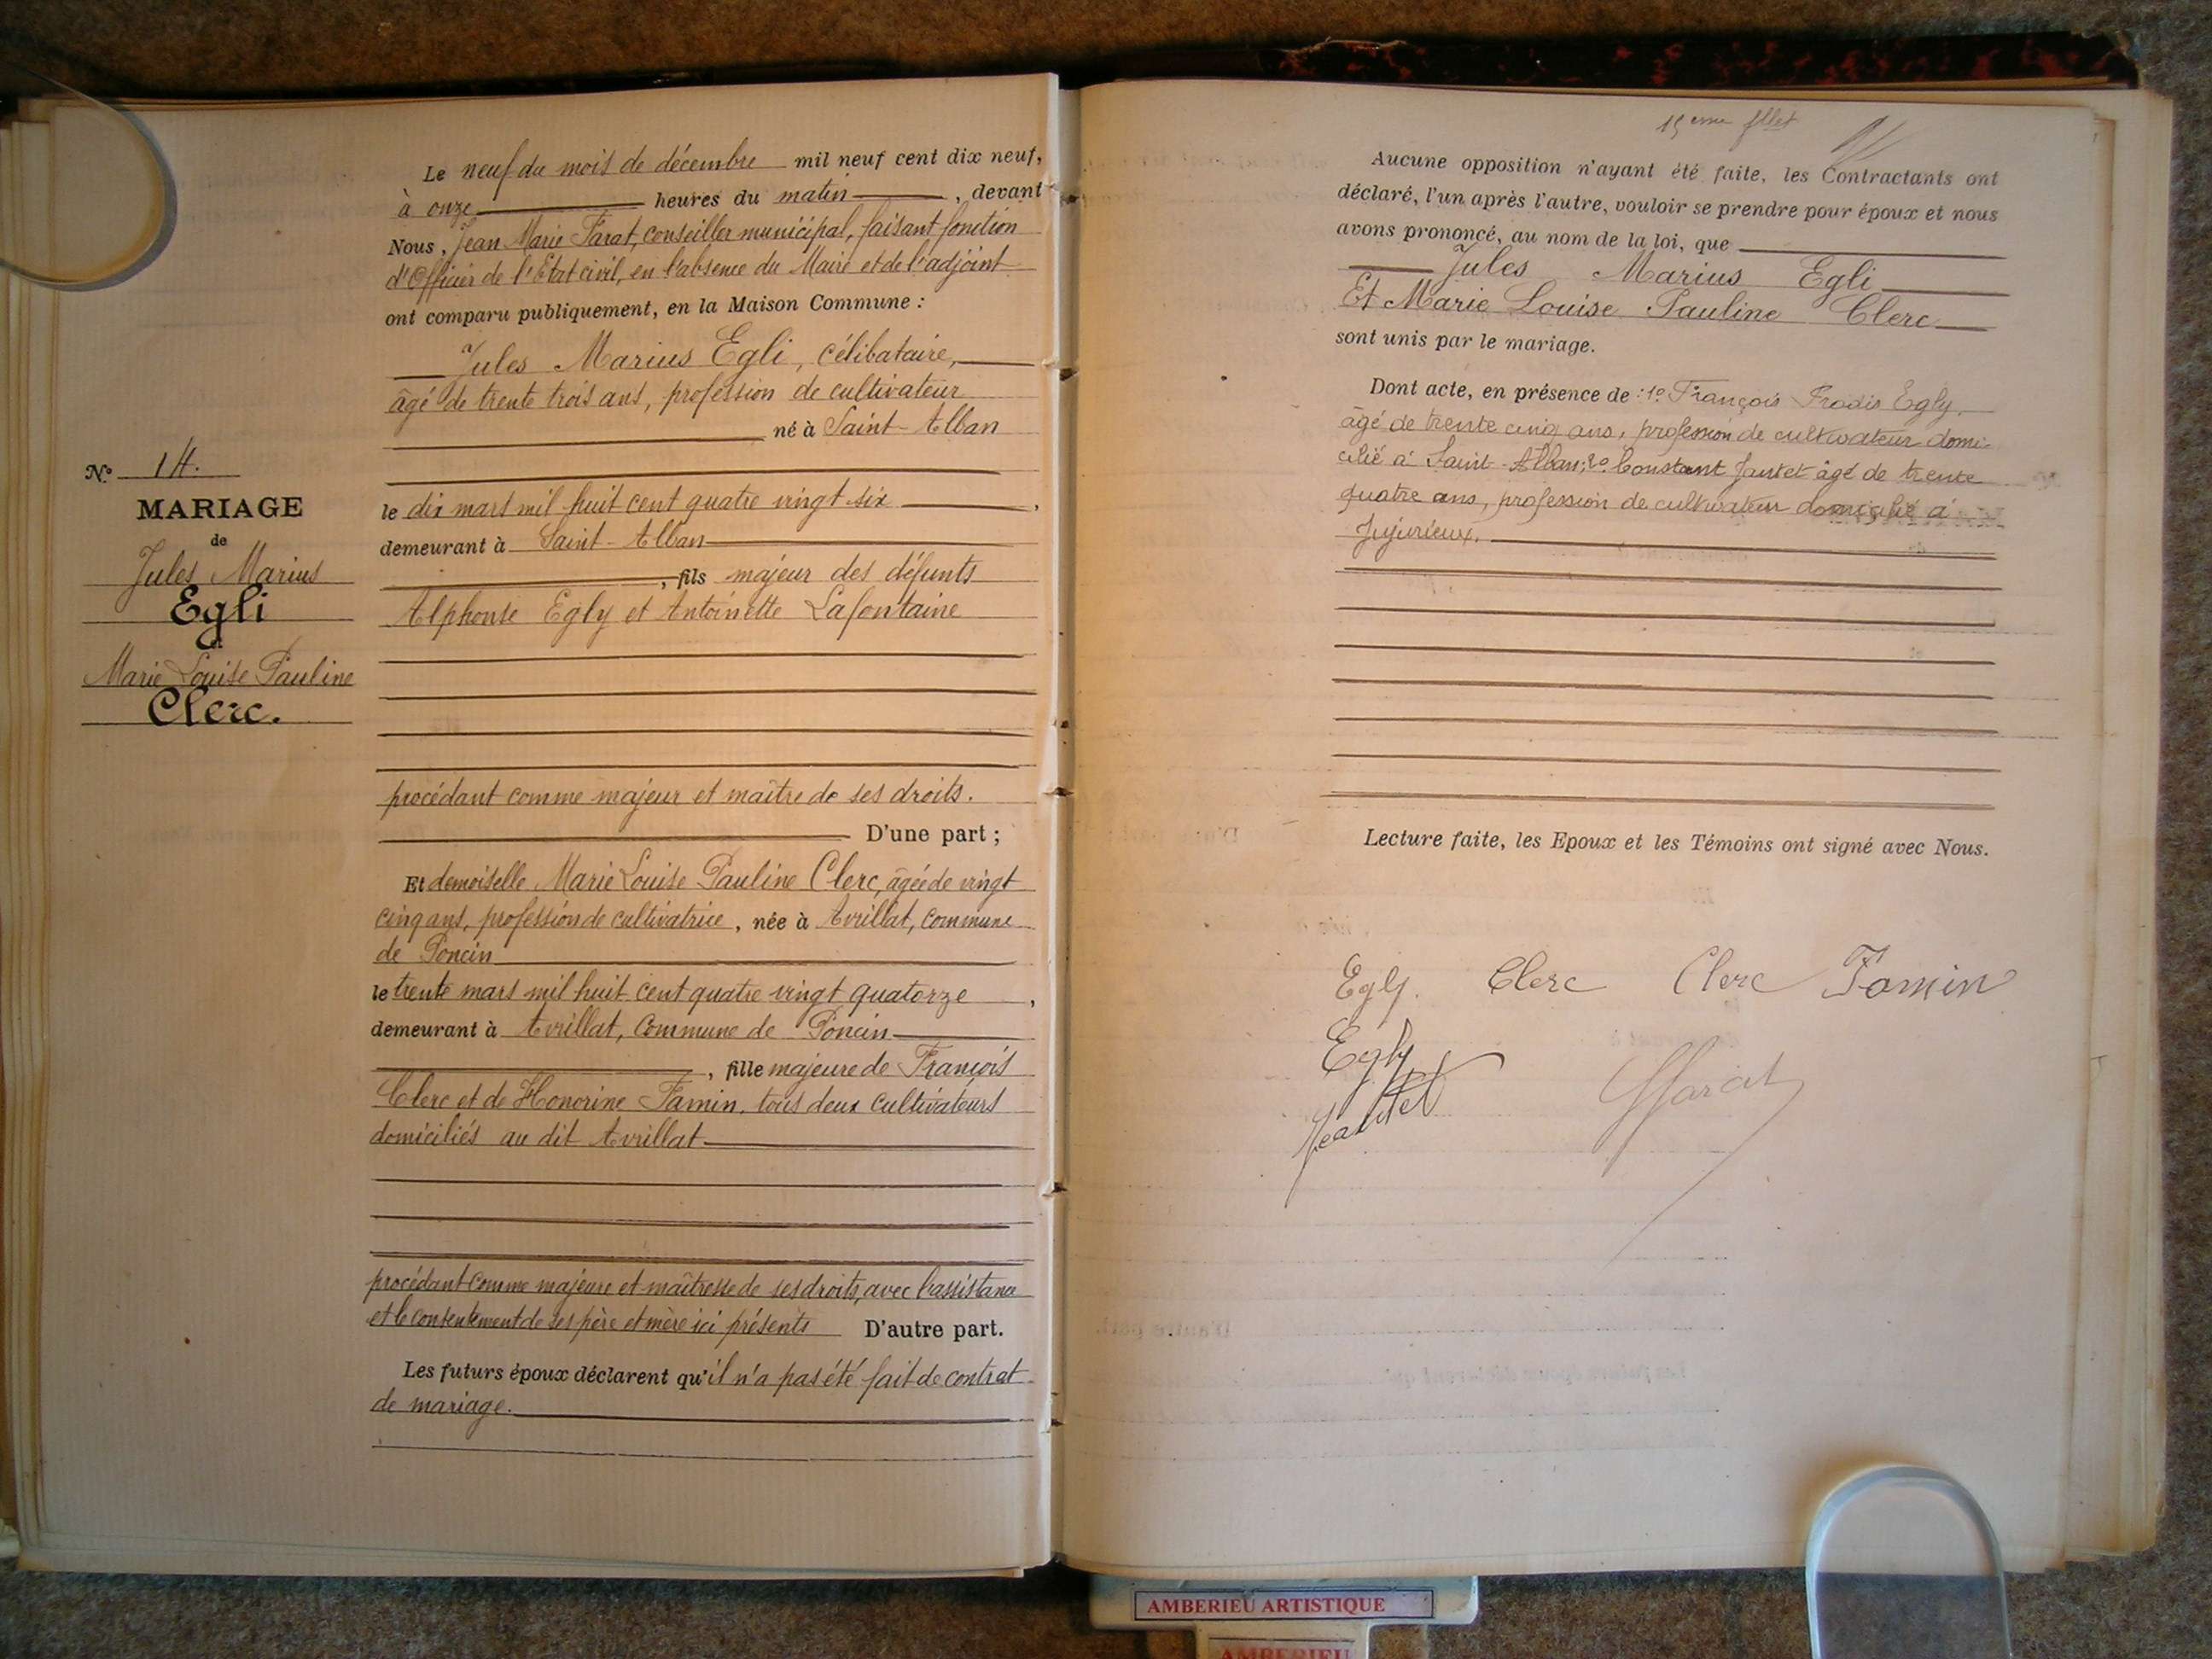 Le neuf du mois de décembre mil neuf cent dix neuf,
à onze heures du matin, devant
Nous, Jean Marie Parat, conseiller municipal, faisant fonction
d'Officier de l'Etat civil, en l'absence du Maire et de l'adjoint
ont comparu publiquement, en la Maison Commune :
Jules Marius Egli, célibataire,
âgé de trente trois ans, profession de cultivateur
né à Saint-Alban
le dix mars mil huit cent quatre vingt six,
demeurant à Saint-Alban
, fils majeur des défunts
Alphonse Egly et Antoinette Lafontaine
procédant comme majeur et maître de ses droits.
D'une part ;
Et demoiselle Marie Louise Pauline Clerc, âgée de vingt
cinq ans, profession de cultivatrice, née à Avrillat, commune
de Poncin
le trente mars mil huit cent quatre vingt quatorze,
demeurant à Avrillat, Commune de Poncin
, fille majeure de François
Clerc et de Honorine Famin, tous deux cultivateurs
domiciliés au dit Avrillat
procédant comme majeure et maîtresse de ses droits, avec l'assistance
et le consentement de ses père et mère ici présents D'autre part.
Les futurs époux déclarent qu'il n'a pas été fait de contrat
de mariage.
N° 14.
MARIAGE
de
Jules Marius
Egli
Marie Louise Pauline
Clerc.
15eme fllet
Aucune opposition n'ayant été faite, les Contractants ont
déclaré, l'un après l'autre, vouloir se prendre pour époux et nous
avons prononcé, au nom de la loi, que
Jules Marius Egli
Et Marie Louise Pauline Clerc
sont unis par le mariage.
Dont acte, en présence de : 1° François Egly,
âgé de trente cinq ans, profession de cultivateur domi-
cilié à Saint-Alban; 2° Constant Jantet âgé de trente
quatre ans, profession de cultivateur domicilié à
Jujurieux.
Lecture faite, les Epoux et les Témoins ont signé avec Nous.
Egly. Clerc Clerc Famin
Egly
Jeantet
AMBERIEU ARTISTIQUE
AMBERIEU